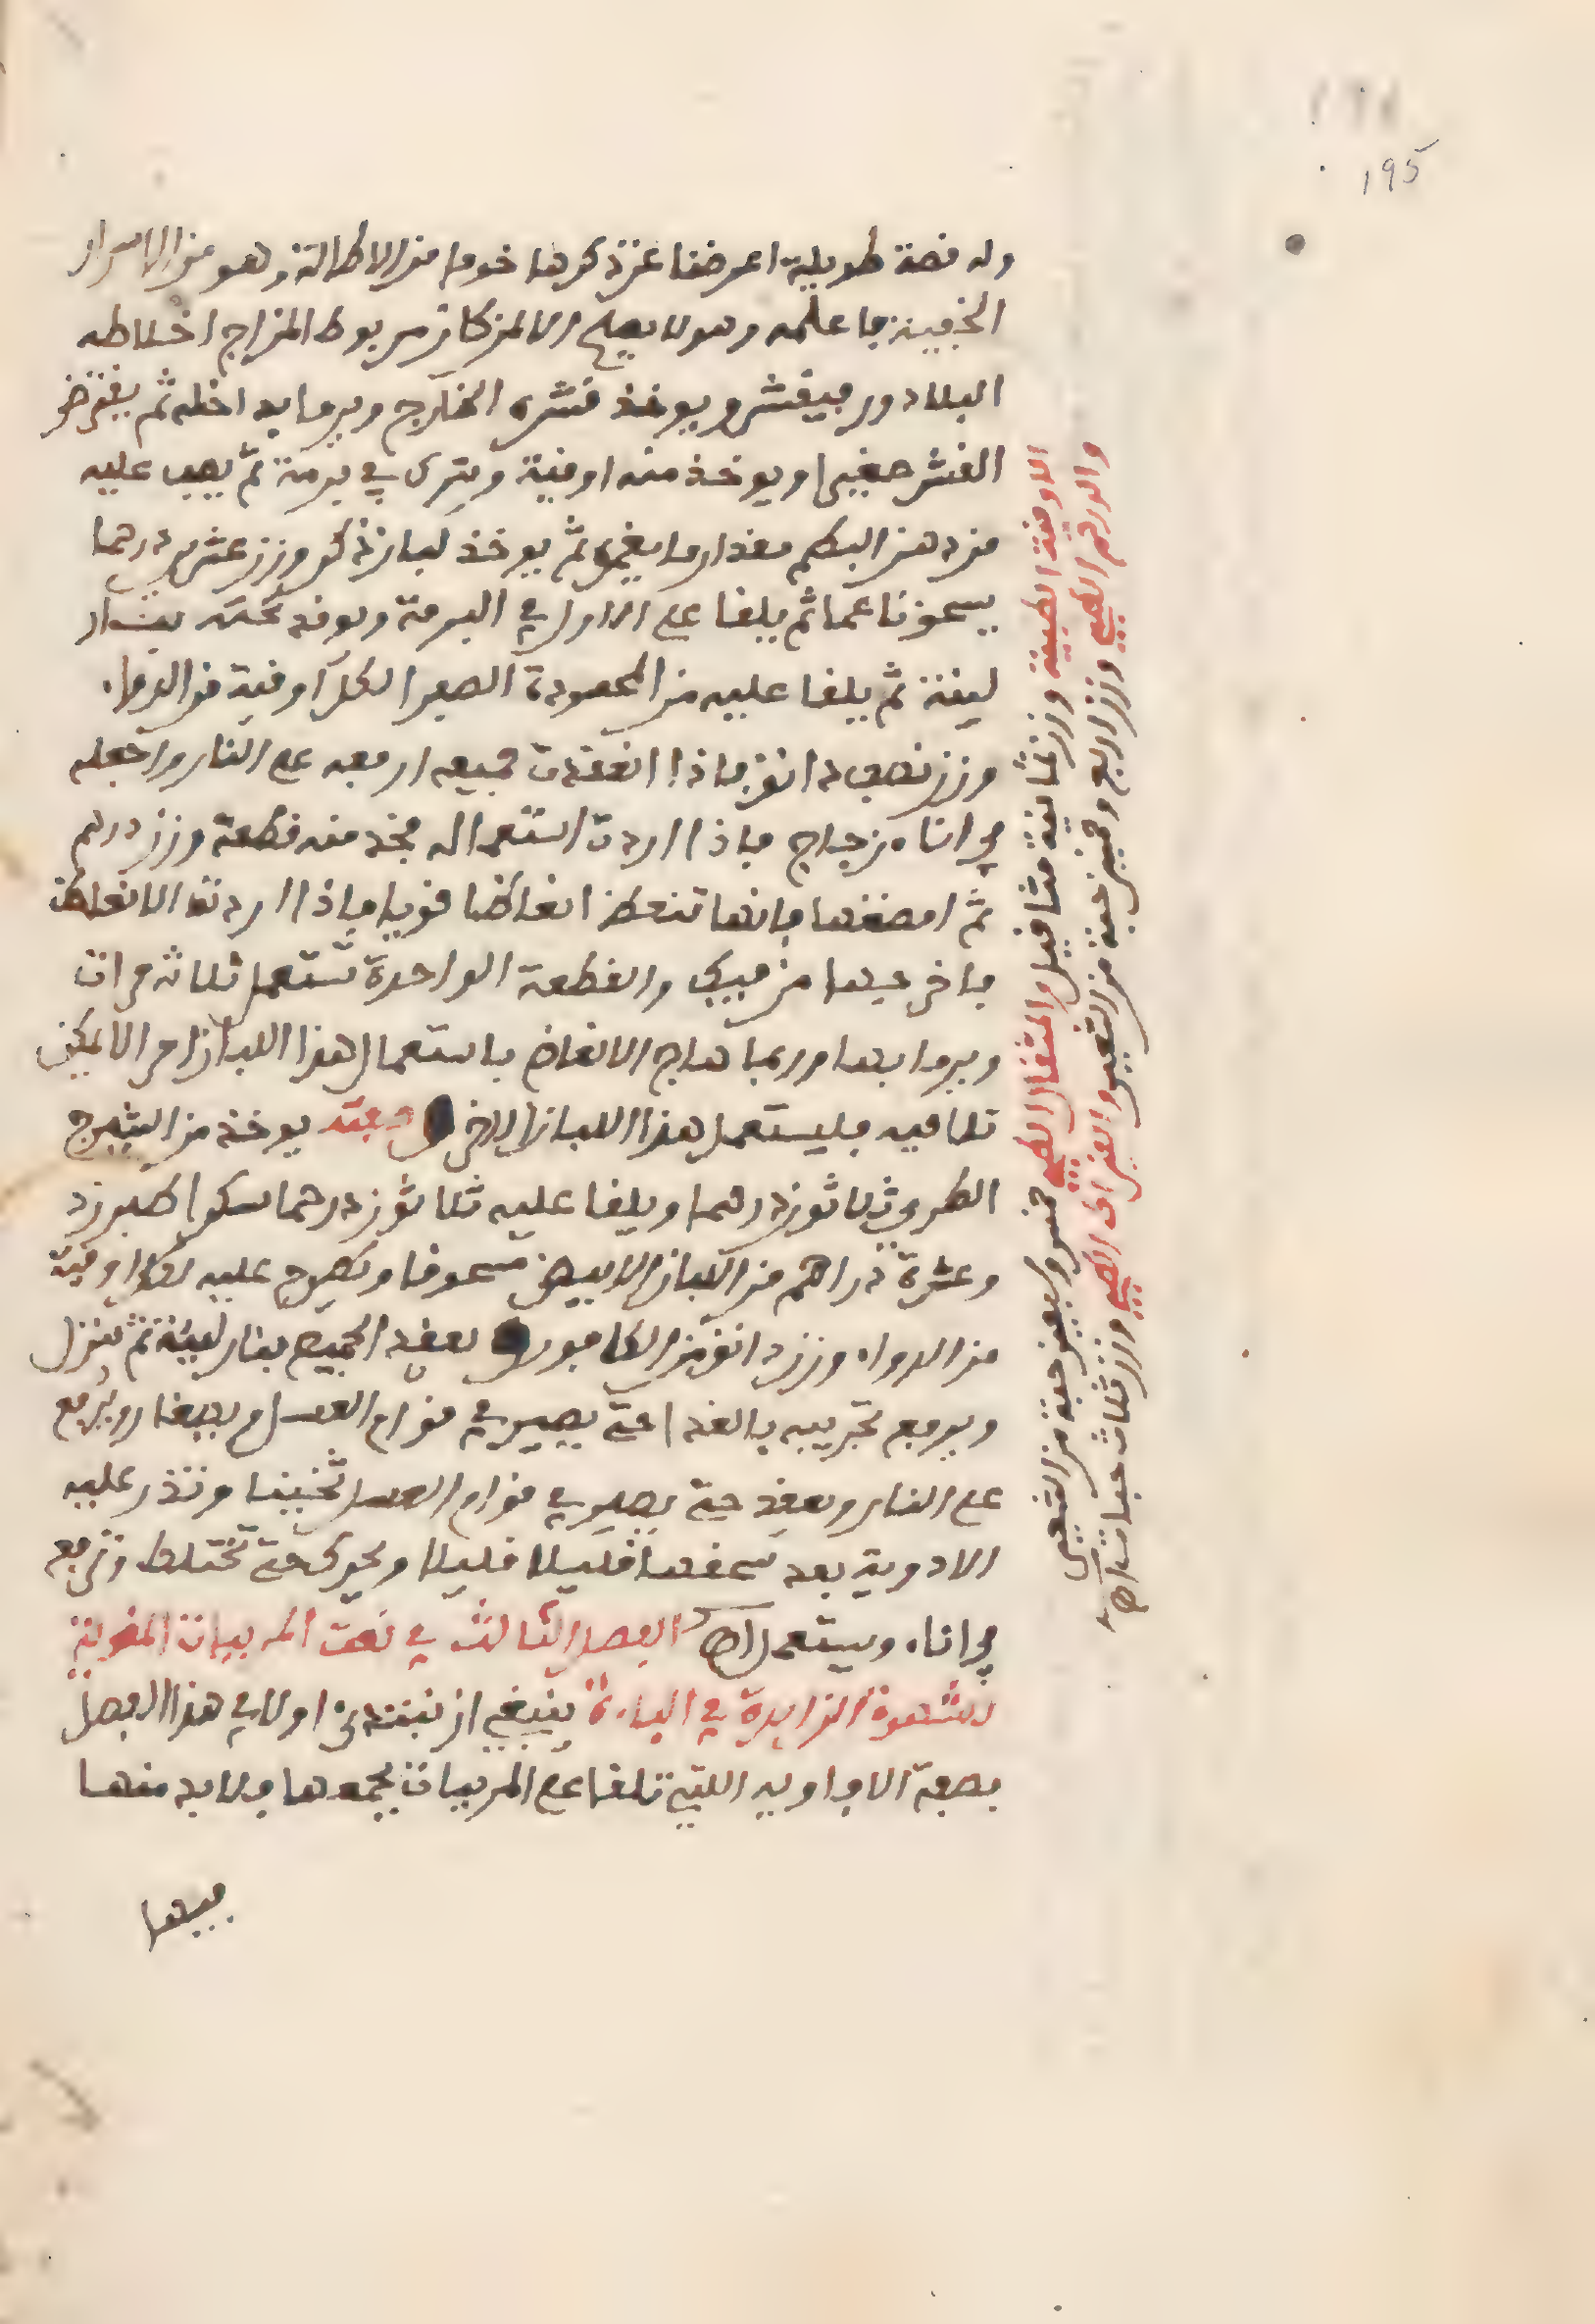 195
وله قصة طويلة اعرضنا عن ذكرها خوفا من الاطالة وهو من الاسرار
الخفية فاعلمه وهو لا يصلح الا لمن كان مربوط المزاج اخلاطه
البلادور فيقشر ويوخذ قشره الخارج ويرما بداخله ثم يقرض
القشر صغيرا ويوخذ منه اوقية ويترك في برمة ثم يصب عليه
من دهن البطم مقدار ما يغمره ثم يوخذ لبان ذكر وزن عشرين درهما
يسحق ناعما ثم يلقا على الاول في البرمة ويوقد تحته بنار
لينة ثم يلقا عليه من المحمودة الصفرا لكل اوقية من الدواء
وزن نصف دانق فاذا انعقدت جميعه ارفعه على النار واجعله
في اناء زجاج فاذا اردت استعماله فخذ منه قطعة وزن درهم
ثم امضغها فانها تنعظ انعاظا قويا فاذا اردت الانعاظ
فاخرجها من فيك والقطعة الواحدة تستعمل ثلاث مرات
ويرما بها وربما هاج الانعاظ باستعمال هذا اللبان امر لا يمكن
تلافيه فليستعمل هذا اللبان الاخر وصفته يوخذ من الشيرج
الطري ثلاثون درهما ويلقا عليه ثلاثون درهما سكرا طبرزد
وعشرة دراهم من اللبان الابيض مسحوقا ويطرح عليه لكل اوقية
من الدواء وزن دانق من الكافور يعقد الجميع بنار لينة ثم ينزل
ويرفع تجريبه بالغدا حتى يصير في قوام العسل ويرفع
على النار ويعقد حتى يصير في قوام العسل ثخينا وتذر عليه
الادوية بعد سحقها قليلا قليلا ويحرك حتى تختلط وترفعه
في اناء ويستعمل اهـ الفصل الثالث في نعت المربيات المقوية
للشهوة الزايدة في الباءة ينبغي ان نبتدئ اولا في هذا الفصل
بصفة الافاويه اللتي تلقا على المربيات بجمعها ولا بد منها
فيها
الاوقية الطبية وزن ثمانية مثاقيل والمثقال الطبي خمس وسبعون حبة من الشعير
والدرهم الطبي وزن اربع وخمسين حبة من الشعير والقيراط الطبي وزن ثلاث حبات اهـ